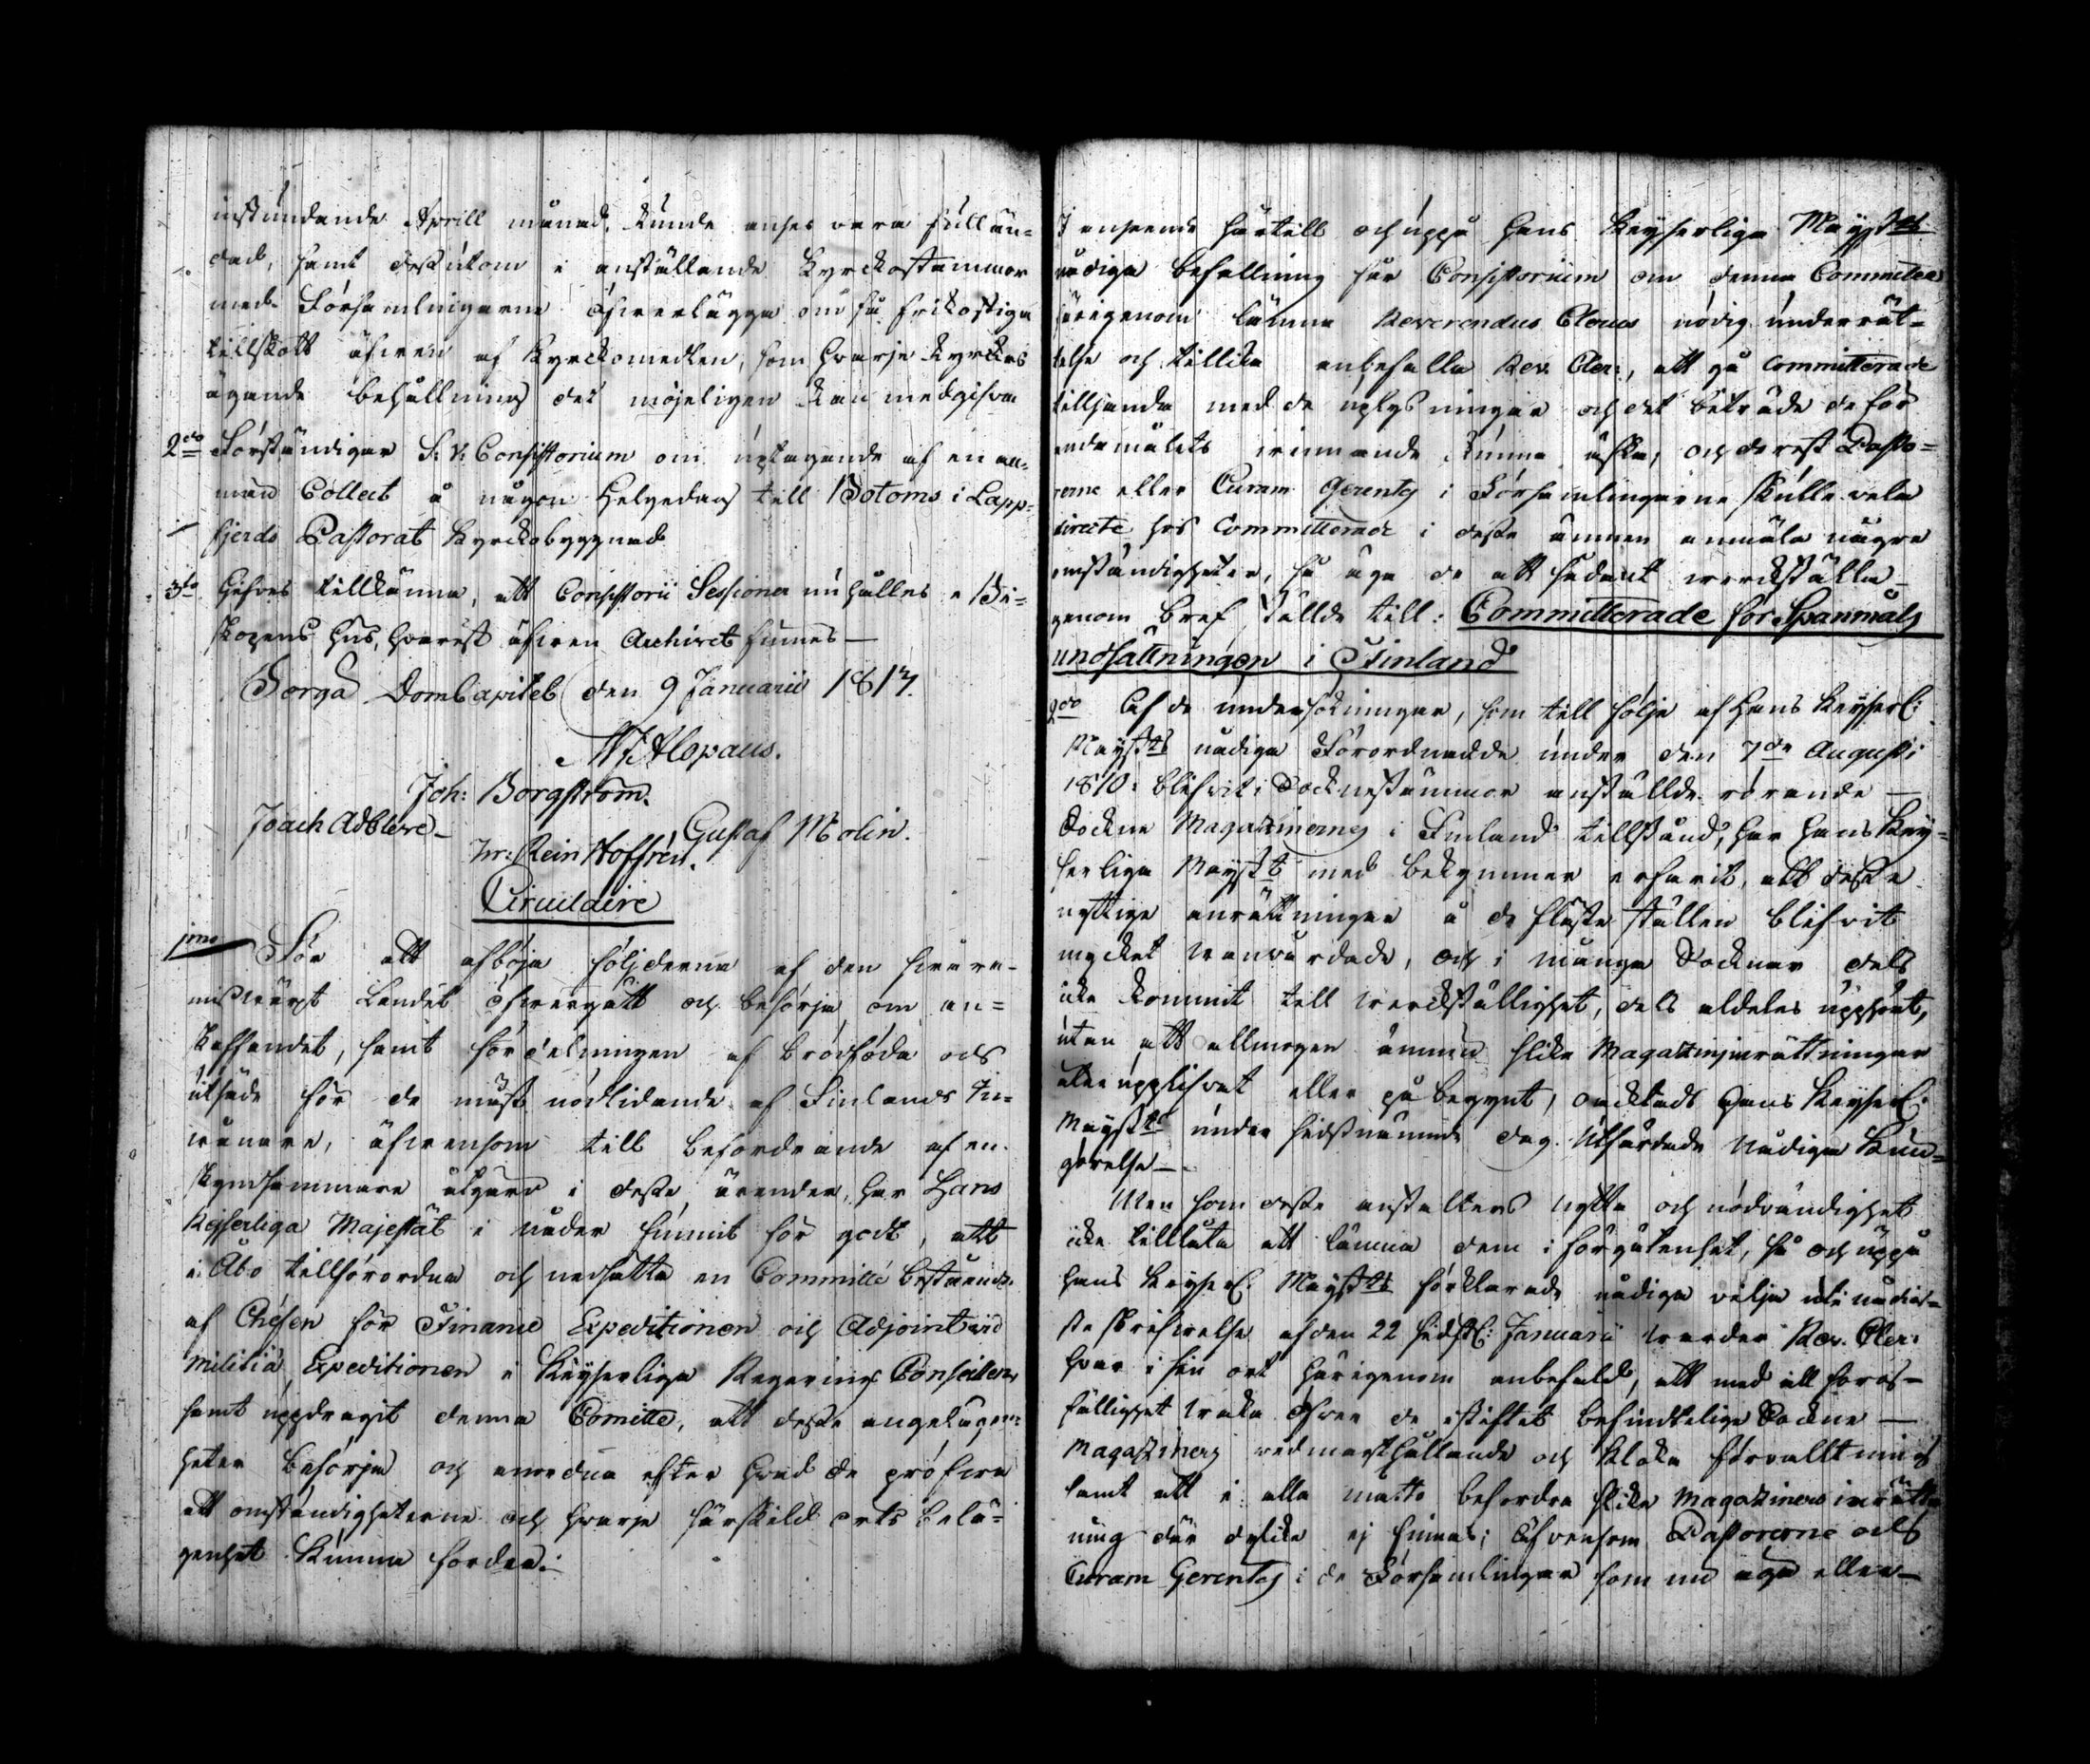 instundande Aprill månad, kunde anses vara fullän-
dad, samt dessutom i anställande Kyrckostämmor
med Församlingarne öfwerlägga om så frikostiga
tillskott äfwen af Kyrckomedlen, som hwarje Kyrckas
ägande behållning det möjeligen kan medgifwa
2do Förständigar S. V. Consistorium om uptagande af en an-
man Collect å någon Helgedag till Bötoms i Lapp-
fjerds Pastorat Kyrckobyggnad
3tio Gifves tillkänna, att Consistorii Sessioner nu hålles i Bi-
skopens hus, hwarest äfwen Archivet finnes —
Borgå DomCapitel den 9 Januarii 1813.
M J Alopæus.
Joh: Borgström.
Joach Adblere
Gustaf Molin.
Hr: Rein Hoffrén.
Circulaire
1mo För att afböja följderna af den swåra
misswäxt Landet öfwergått och besörja om an-
skaffandet, samt fördelningen af brödföda och
utsäde för de mäst nödlidande af Finlands In-
wånare, äfwensom till befordrande af en
skyndsammare åtgärd i desse ärenden, har Hans
Kejserliga Majestät i nåder funnit för godt, att
i Åbo tillförordna och nedsätta en Committé bestående
af Chefen för Finance Expeditionen och Adjoint vid
Militiæ Expeditionen i Keyserliga Regerings Conseilen,
samt uppdragit denna Comitté, att desse angelägen-
heter besörja och anordna efter hwad de pröfwa
att omständigheterne och hwarje särskild orts belä-
genhet kunna fordra.
I anseende härtill och uppå Hans Keyserliga Mayst:ts
nådiga befallning får Consistorium om denna Committée
härigenom lämna Reverendus Clerus nödig underrät-
telse och tillika anbefalla Rev. Cler:, att gå Committerade
tillhanda med de uplysningar och det biträde de för
endamålets winnande kunna äska, och derest Pasto-
rerne eller Curam Gerentes i Församlingarne skulle vela
directe hos Committerade i desse ämnen anmäla någre
omständigheter, så äga de att sådant werckställa
genom bref stälde till: Committerade för Spanmåls
undsättningen i Finland
2do Af de undersökningar, som till följe af Hans Keyserl:
Mayst:ts nådiga Förordnande under den 7de Augusti
1810 blifwit i Socknestämmor anställde rörande
Sockne Magazinernes i Finland tillstånd, har Hans Key-
serliga Mayst:t med bekymmer erfarit, att desse
nyttige inrättningar å de fläste ställen blifvit
mycket wanwårdade, och i många Socknar dels
icke kommit till werckställighet, dels aldeles upphört,
utan att allmogen ännu slike Magazinsinrättningar
åter upplifvat eller påbegynt, oacktadt Hans Keyserl:
Mayst:ts under sidstnämnde dag utfärdade Nådiga Kun-
görelse —
Men som desse anstalters nytta och nödvändighet
icke tillåta att lämna dem i förgätenhet, så och uppå
Hans Keyserl: Mayst:ts förklarade nådiga vilja uti nådig-
ste skrifwelse af den 22 sidstl: Januarii warder Rev. Cler:
hvar i sin ort härigenom anbefald, att med all sorg-
fällighet waka öfwer de i stiftet befindtelige Sockne
Magaziners vidmackthållande och kloka förvalltning
samt att i alla måtto befordra slike Magaziners inrätt-
ning där dylike ej finnas; Äfvensom Pastorerne och
Curam Gerentes i de Församlingar som nu äga eller